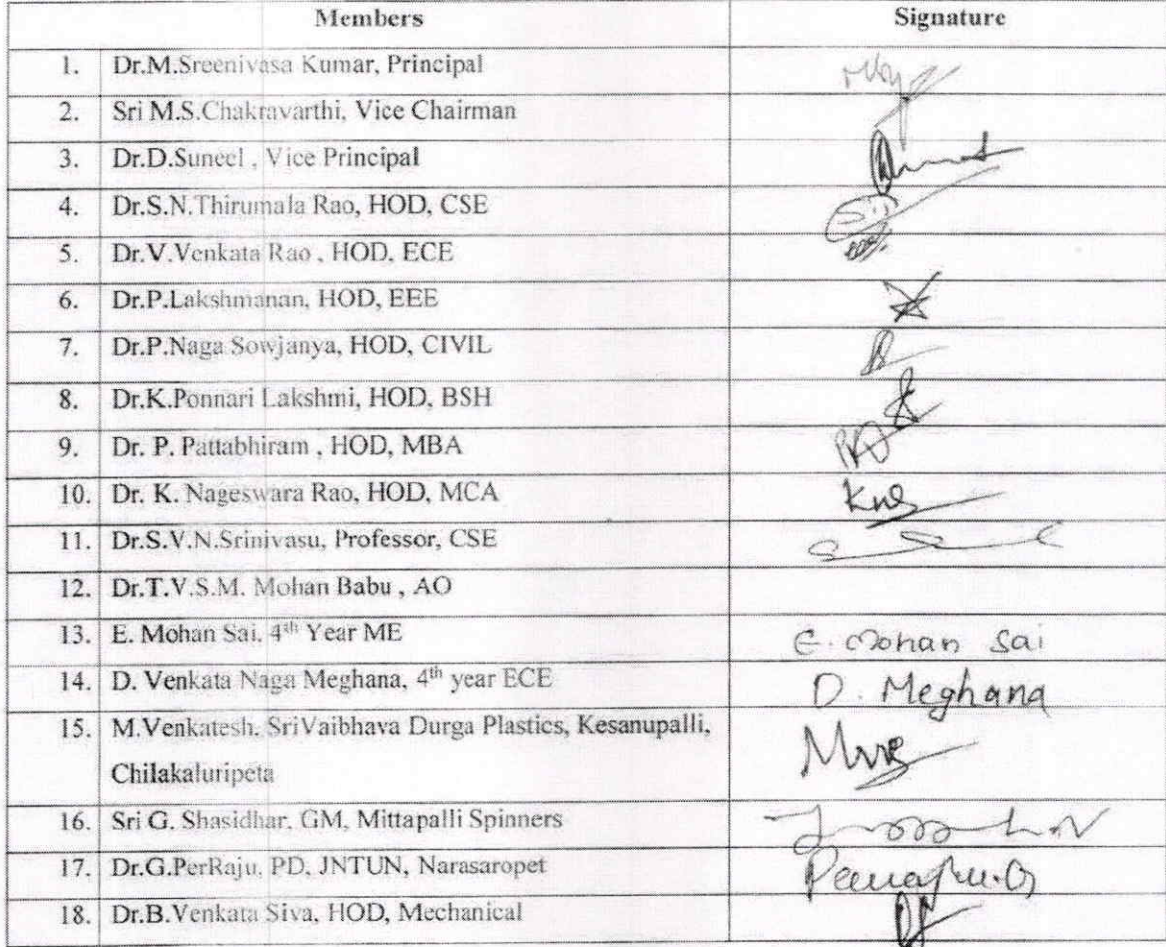 Members Signature
1. Dr.M.Sreenivasa Kumar, Principal
2. Sri M.S.Chakravarthi, Vice Chairman
3. Dr.D.Suneel , Vice Principal
4. Dr.S.N.Thirumala Rao, HOD, CSE
5. Dr.V.Venkata Rao , HOD, ECE
6. Dr.P.Lakshmanan, HOD, EEE
7. Dr.P.Naga Sowjanya, HOD, CIVIL
8. Dr.K.Ponnari Lakshmi, HOD, BSH
9. Dr. P. Pattabhiram , HOD, MBA
10. Dr. K. Nageswara Rao, HOD, MCA
11. Dr.S.V.N.Srinivasu, Professor, CSE
12. Dr.T.V.S.M. Mohan Babu , AO
13. E. Mohan Sai, 4th Year ME E. Mohan Sai
14. D. Venkata Naga Meghana, 4th year ECE D. Meghana
15. M.Venkatesh, SriVaibhava Durga Plastics, Kesanupalli,
Chilakaluripeta
16. Sri G. Shasidhar, GM, Mittapalli Spinners
17. Dr.G.PerRaju, PD, JNTUN, Narasaropet
18. Dr.B.Venkata Siva, HOD, Mechanical